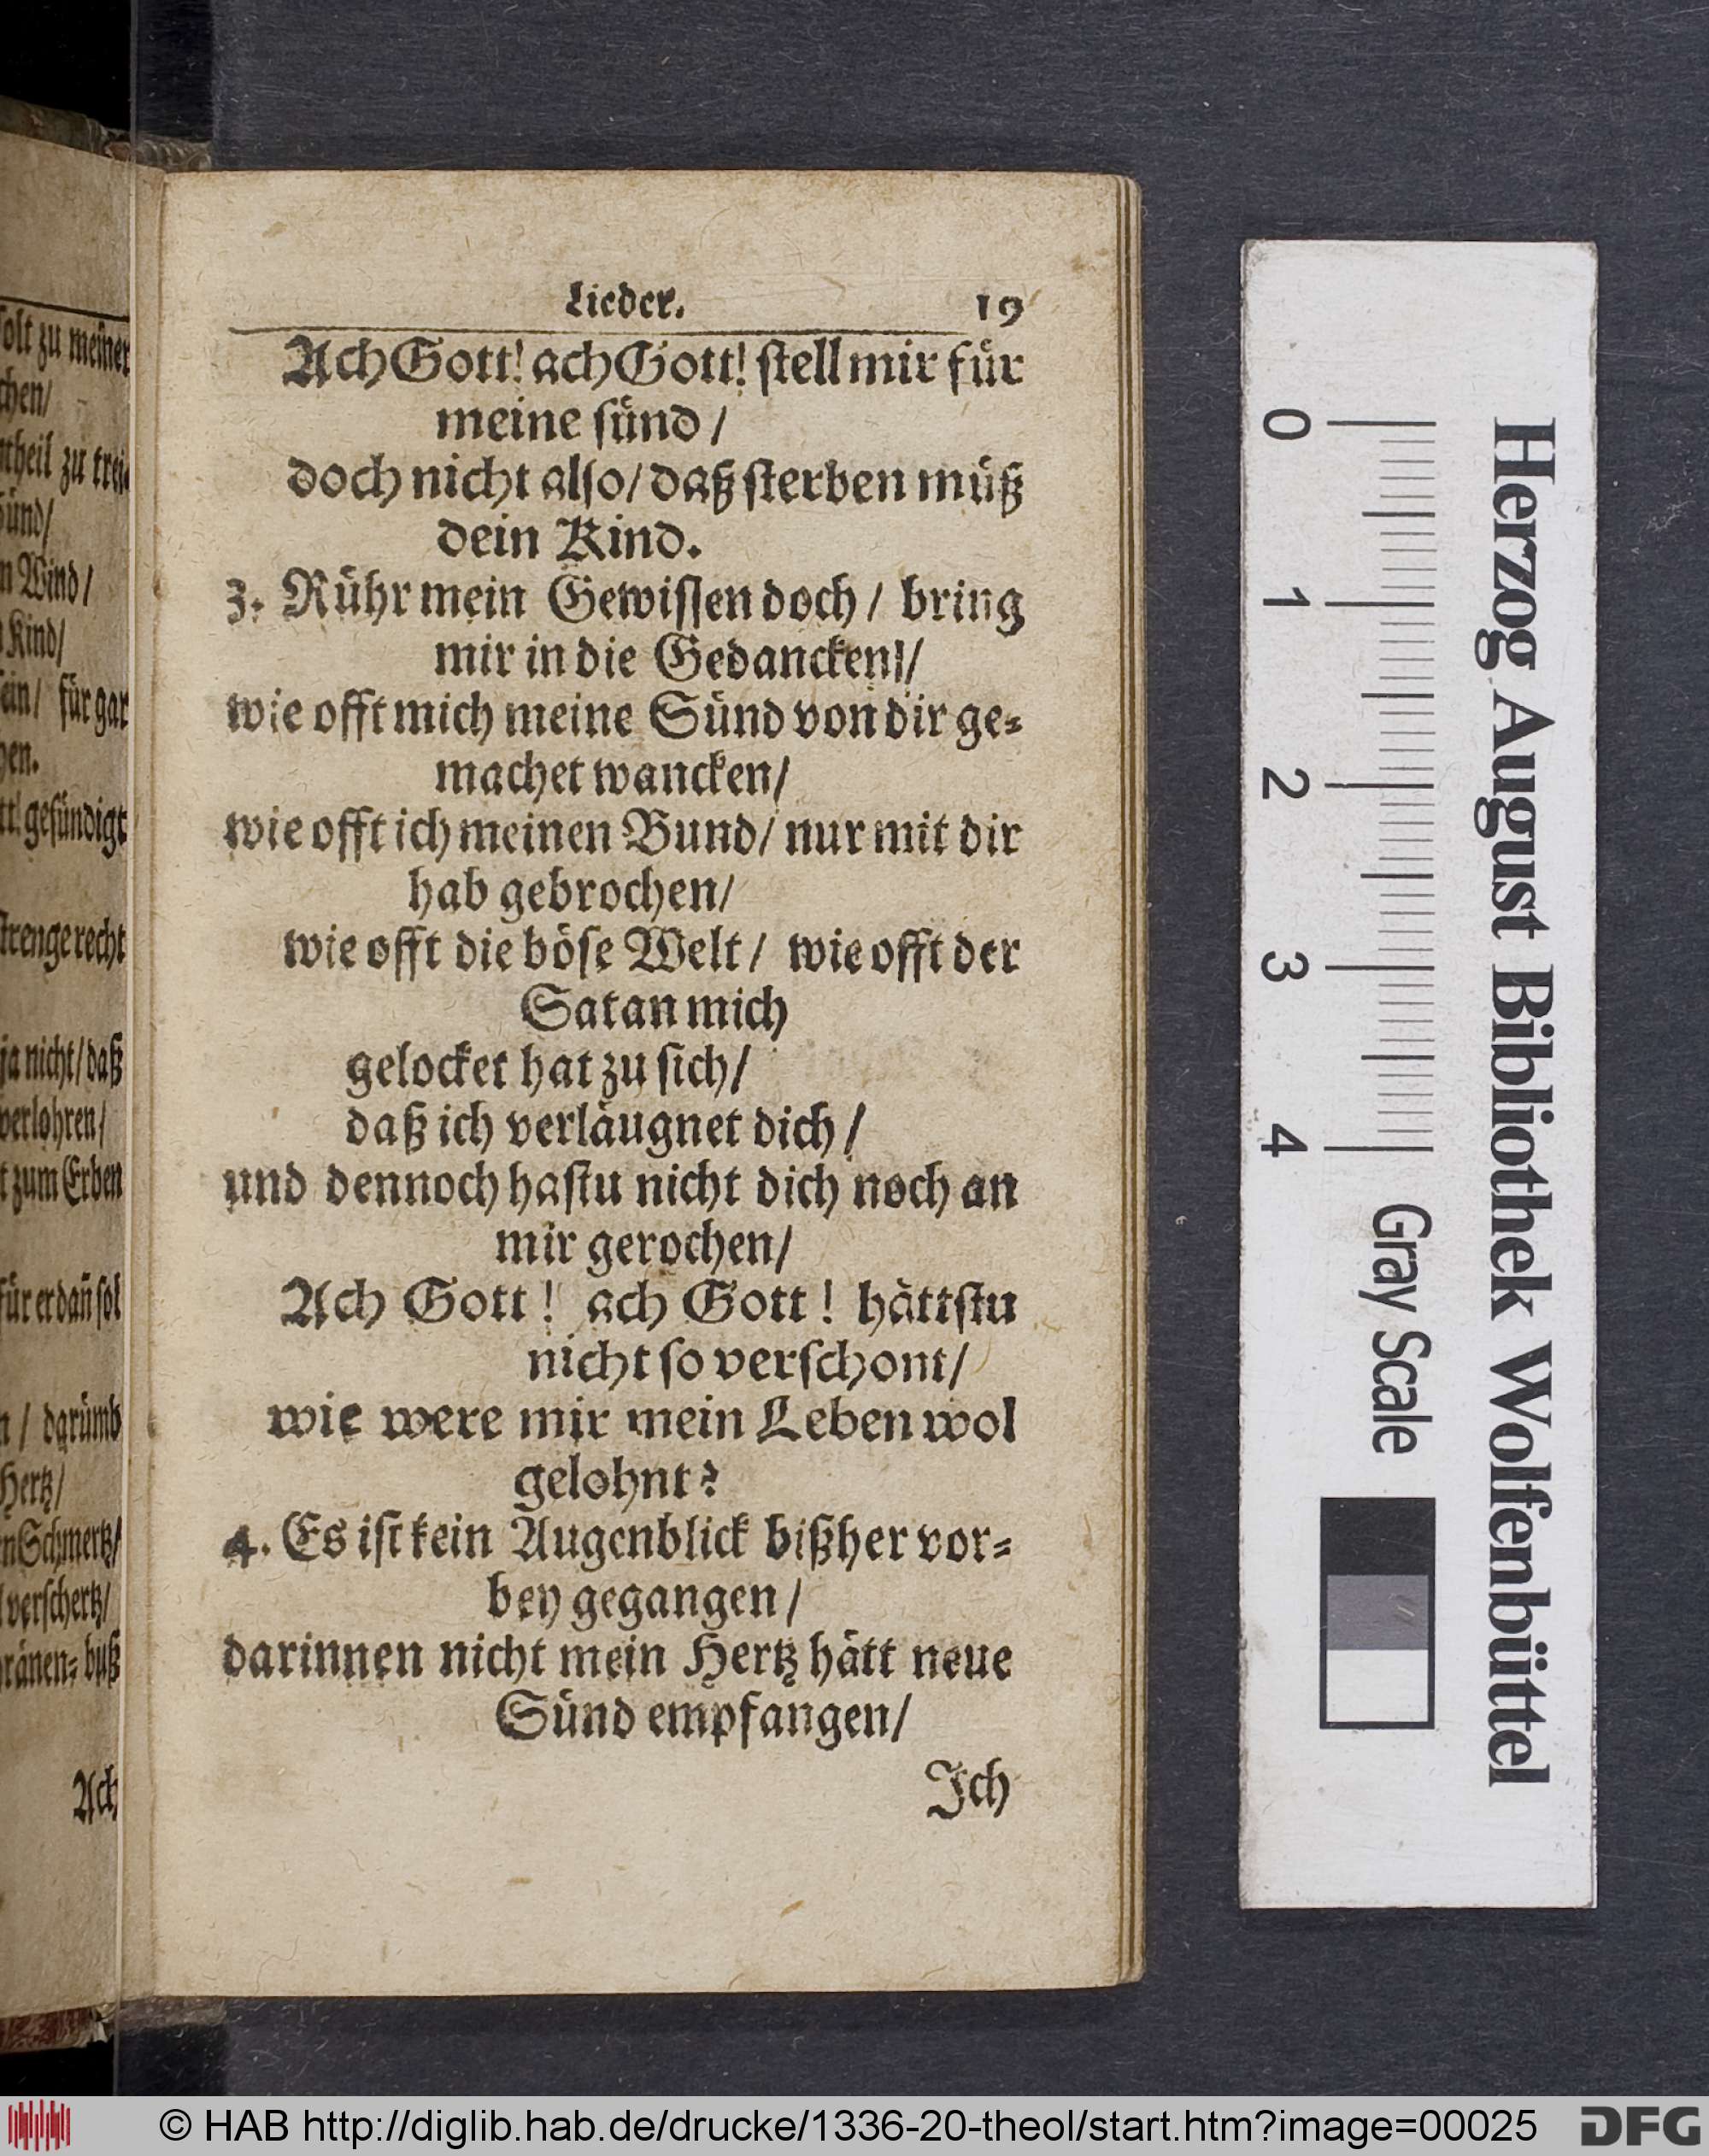 Lieder. 19
Ach Gott! ach Gott! ſtell mir fuͤr
meine ſuͤnd /
doch nicht alſo / daß ſterben muͤß
dein Kind.
3. Ruͤhr mein Gewiſſen doch / bring
mir in die Gedancken /
wie offt mich meine Suͤnd von dir ge⸗
machet wancken /
wie offt ich meinen Bund / nur mit dir
hab gebrochen /
wie offt die boͤſe Welt / wie offt der
Satan mich
gelocket hat zu ſich /
daß ich verlaͤugnet dich /
und dennoch haſtu nicht dich noch an
mir gerochen /
Ach Gott! ach Gott! haͤttſtu
nicht ſo verſchont /
wie were mir mein Leben wol
gelohnt?
4. Es iſt kein Augenblick bißher vor⸗
bey gegangen /
darinnen nicht mein Hertz haͤtt neue
Suͤnd empfangen /
Ich
zu meiner
chen /
theil zu trei⸗
Wind /
Kind /
fuͤr gar
geſuͤndigt
recht
ja nicht / daß
verlohren /
zum Erben
fuͤr er dañ ſol
/ daruͤmb
Hertz /
Schmertz /
verſchertz /
buß
Ach
0 1 2 3 4
Gray Scale
Herzog August Bibliothek Wolfenbüttel
© HAB http://diglib.hab.de/drucke/1336-20-theol/start.htm?image=00025
DFG